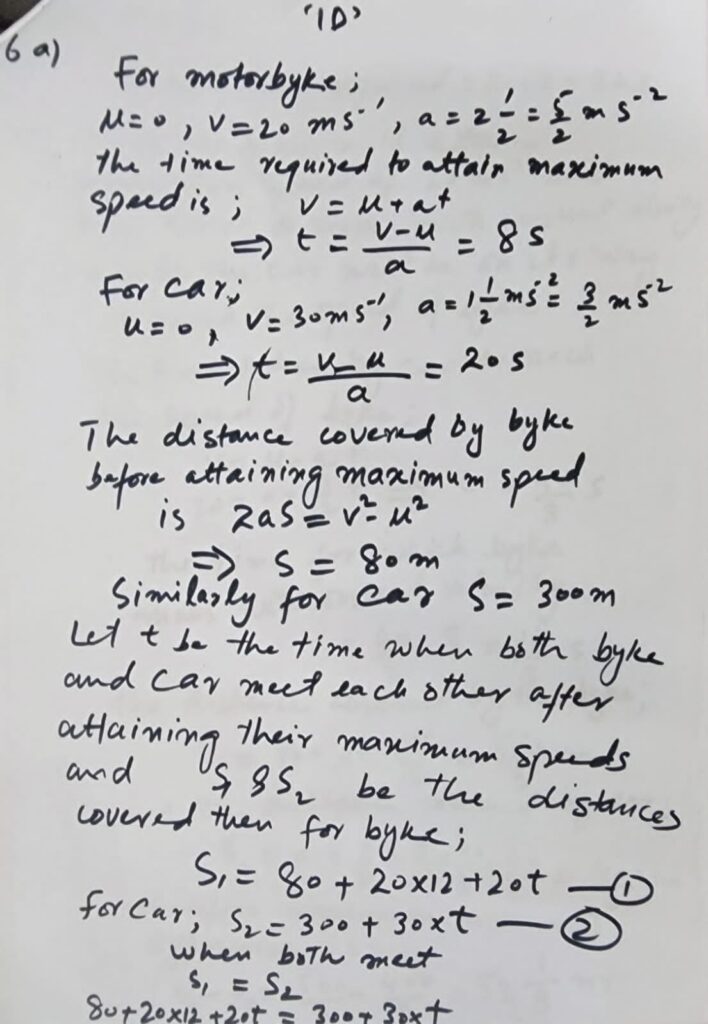 '1D'
6 a)
For motorbyke;
u=0, v=20 ms⁻¹, a=2 1/2 = 5/2 m s⁻²
the time required to attain maximum
speed is; v = u+at
⇒ t = (v-u)/a = 8 s
For car;
u=0, v=30 ms⁻¹, a=1 1/2 ms⁻² = 3/2 m s⁻²
⇒ t = (v-u)/a = 20 s
The distance covered by byke
before attaining maximum speed
is 2aS = v²-u²
⇒ S = 80 m
Similarly for car S= 300 m
Let t be the time when both byke
and car meet each other after
attaining their maximum speeds
and S₁ & S₂ be the distances
covered then for byke;
S₁ = 80 + 20x12 + 20t — ①
for Car; S₂ = 300 + 30xt — ②
when both meet
S₁ = S₂
80+20x12+20t = 300+30xt